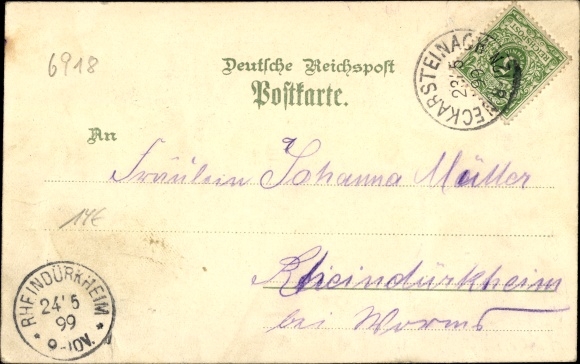 6918
Deutsche Reichspost
Postkarte.
NECKARSTEINACH
An
Fräulein Johanna Müller
14€
Rheindürkheim
bei Worms
RHEINDÜRKHEIM
24 5
99
* 9-10V. *